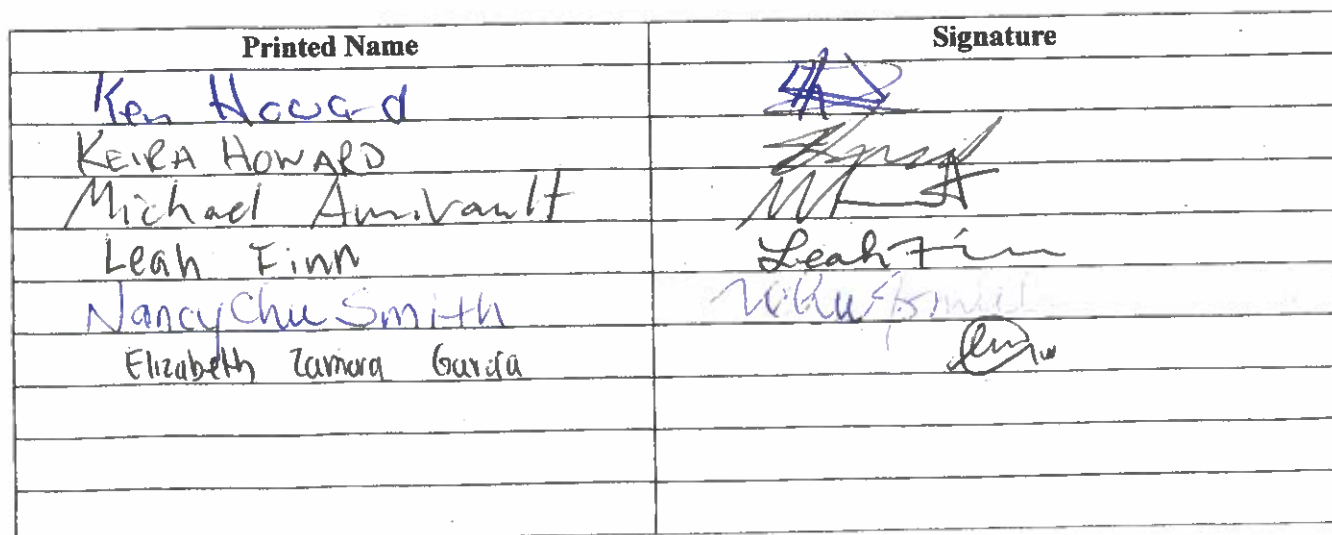 Printed Name Signature
Ken Howard
KEIRA HOWARD
Michael Amirault
Leah Finn Leah Finn
Nancy Chu Smith
Elizabeth Zamora Garcia